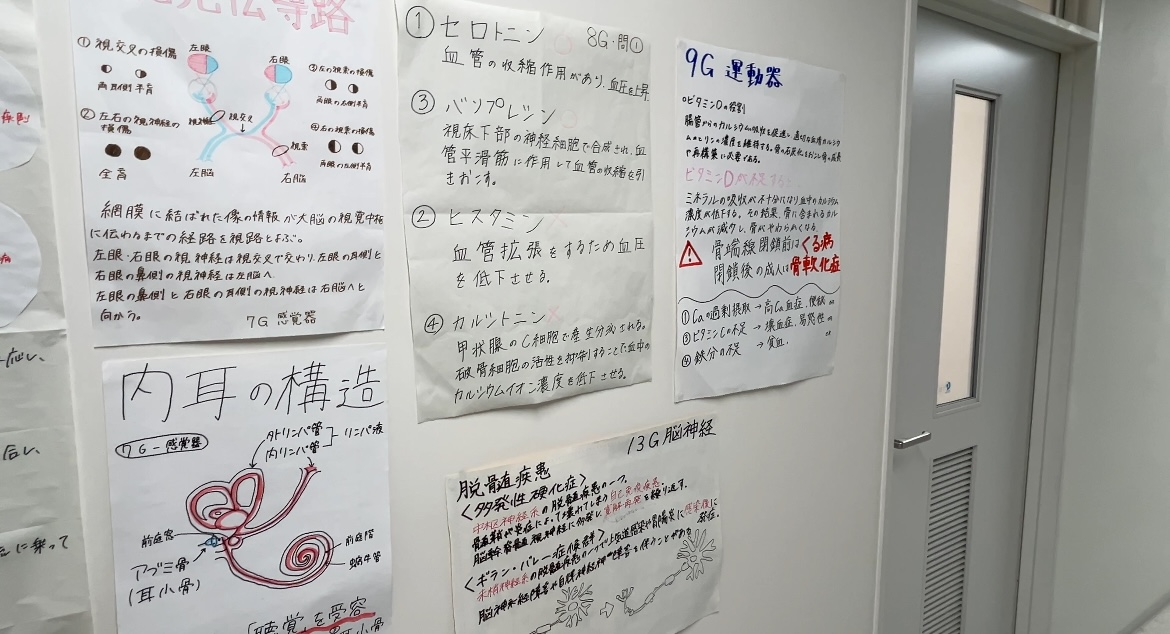 視覚伝導路
①視交叉の損傷
両耳側半盲
②左右の視神経の
損傷
全盲
左眼
右眼
視神経
視交叉
視索
左脳
右脳
③左の視索の損傷
両眼の右側半盲
④右の視索の損傷
両眼の左側半盲
網膜に結ばれた像の情報が大脳の視覚中枢
に伝わるまでの経路を視路とよぶ。
左眼・右眼の視神経は視交叉で交わり、左眼の耳側と
右眼の鼻側の視神経は左脳へ。
左眼の鼻側と右眼の耳側の視神経は右脳へと
向かう。
7G 感覚器
内耳の構造
7G-感覚器
外リンパ管
内リンパ管
リンパ液
前庭窓
アブミ骨
(耳小骨)
前庭階
蝸牛管
「聴覚」を受容
耳小骨
①セロトニン
8G・問①
血管の収縮作用があり、血圧を上昇
③バソプレシン
視床下部の神経細胞で合成され、血
管平滑筋に作用して血管の収縮を引
きおこす。
②ヒスタミン
血管拡張をするため血圧
を低下させる。
④カルシトニン
甲状腺のC細胞で産生分泌される。
破骨細胞の活性を抑制することで、血中の
カルシウムイオン濃度を低下させる。
9G 運動器
○ビタミンDの役割
腸管からのカルシウム吸収を促進し、適切な血清カルシウ
ムとリンの濃度を維持する。骨の石灰化をおこし骨の成長
や再構築に必要である。
ビタミンDが不足すると
ミネラルの吸収が不十分になり血中のカルシウム
濃度が低下する。その結果、骨に含まれるカル
シウムが減少し、骨がやわらかくなる。
骨端線閉鎖前はくる病
閉鎖後の成人は骨軟化症
①Caの過剰摂取→高Ca血症、便秘 or
ビタミンCの不足→壊血症、易怒性の or
鉄分の不足→貧血. or
13G 脳神経
脱髄疾患
<多発性硬化症>
中枢神経系の脱髄疾患の一つ。
髄鞘が炎症によって壊れてしまう自己免疫疾患。
脳幹、脊髄、視神経に多発し、寛解・再発を繰り返す。
<ギラン・バレー症候群>
末梢神経系の脱髄疾患の一つで上気道感染や胃腸炎に感染後に
発症。
脳神経障害や自律神経障害を伴うことがある
応し、
合し、
に乗って